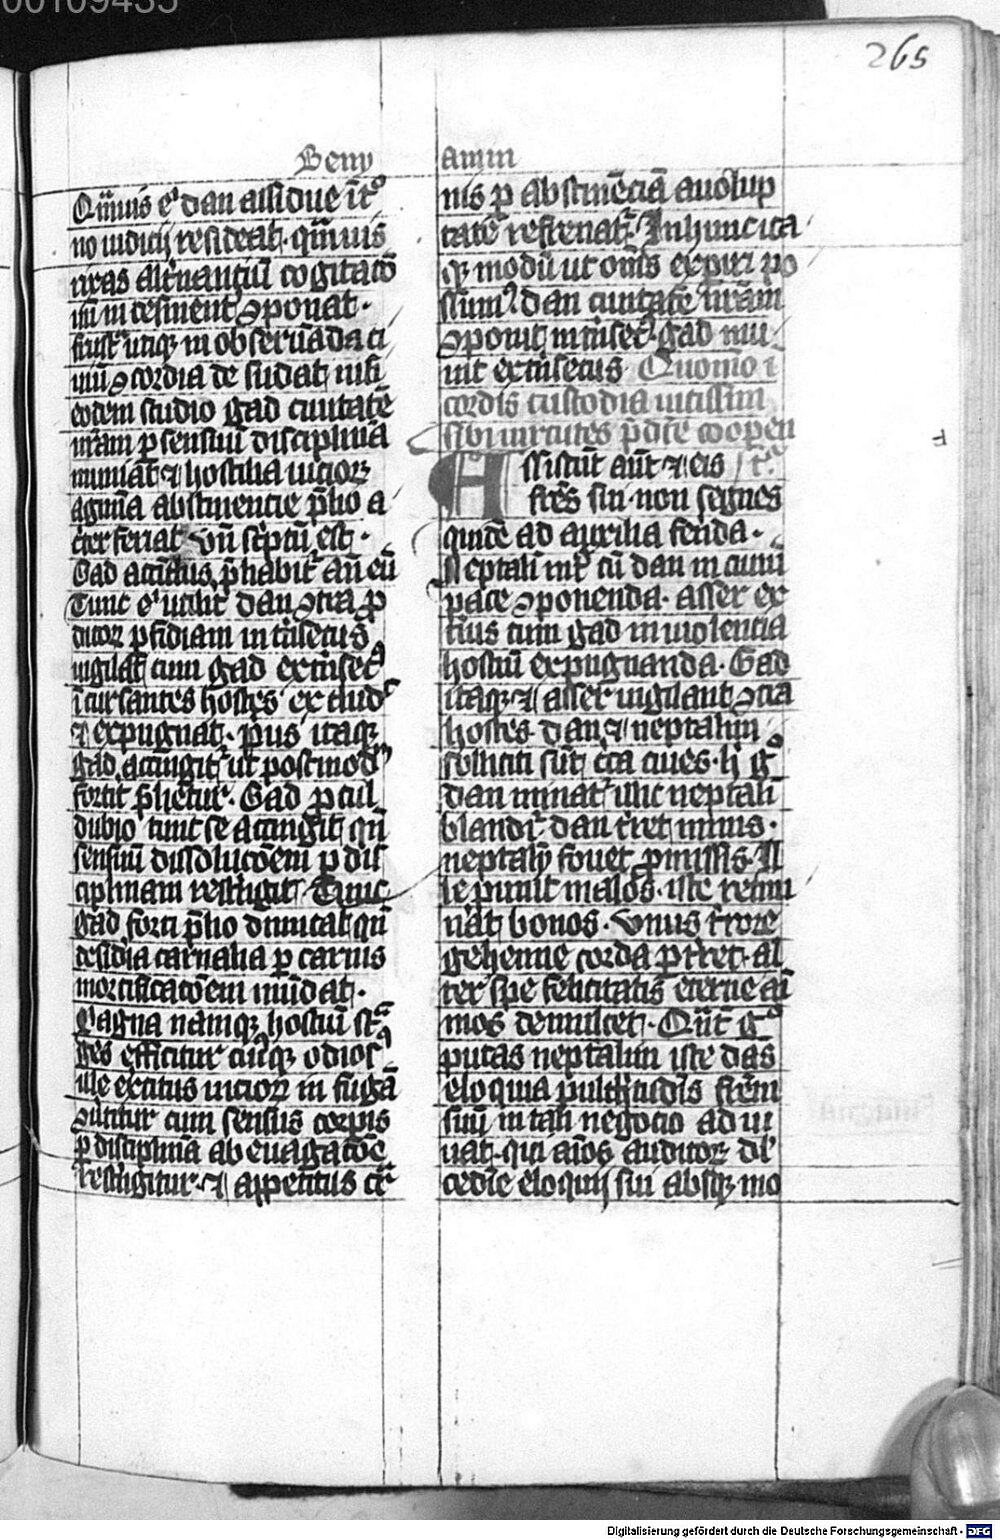 00109435
265
Beny
amin
Qm̄uis eͥ dan assidue it͛
no iudicij resideat. qm̄uis
uras alt͛nanciū cogitatō
nū in cesment ꝯponat.
frust͛ utiq; in obseruāda ci
uiū ꝯcordia desudat nisi
eodem studio gad ciuitatē
nr̄am p sensuū disciplinā
muniat ⁊ hostilia uicioꝝ
agmīa abstinencie p̄lio a
cter feriat Vn̄ sc̄ptū est.
Gad accīctus p̄liabit͛ an̄ eū
Tunc eͥ utilit͛ dan ꝯtra p
ditoꝝ pfidiam intrīsecus
uigilat cum gad extrīsecꝰ
īcursantes hostes ex aud͛
⁊ expugnat. p͛us itaq;
gad accingit͛ ut postmodū
fortit͛ p̄liet͛ur. Gad pcul
dubio tunc se accingit qn̄
sensuū dissolucōem p dis
ciplinam restrīgit Tunc
Gad forti p̄lio dimicat qn̄
desid͛ia carnalia p carnis
mortificatōem mūdat.
Magna namq; hostiū st͛
ges efficitur cūq; odiosꝰ
ille excitus uicioꝝ in fugā
ūtitur cum sensus corpis
p disciplinā ab euagatōe
restrīgitur. ⁊ appetitus c͛r
nis p abstinēciā a uolup
tate refrenat͛. In hunc ita
q; modū ut om̄s expiri po
ssumꝰ dan ciuitatē nr̄am
ꝯponit intrīsecꝰ. gad mu
nit extrīsecus. Quomō i
cordis custodia uitissim
sibi uirtutes p̄dc̄e cooperēt͛
Assistūt aūt ⁊ eis
fr̄es sui. non segnes
quidē ad auxilia ferēda.
Neptalī nīr cū dan in ciuiū
pace ꝯponenda. asser ex
tius cum gad in uiolencia
hostiū expugnanda. Gad
itaq; ⁊ asser uigilant ꝯtra
hostes. dan ⁊ neptalim
solliciti sūt c͛ca ciues. h̄ g͛
dan minat͛ illic neptalī
blandit͛. dan t͛ret minis.
neptaly fouet pmissis. Il
le punit malos. iste remu
nat bonos. Vnus t͛rore
gehenne corda pt͛ret. al
ter spe felicitatis eterne aī
mos demulcet. Qn̄t͛ g͛
putas neptalim iste dās
eloquia pulch͛tudīs fr̄em
suū in tali negocio adiu
uat. qui aīos auditoꝝ dl͛
cedīe eloquij sui absq; mo
Digitalisierung gefördert durch die Deutsche Forschungsgemeinschaft - DFG